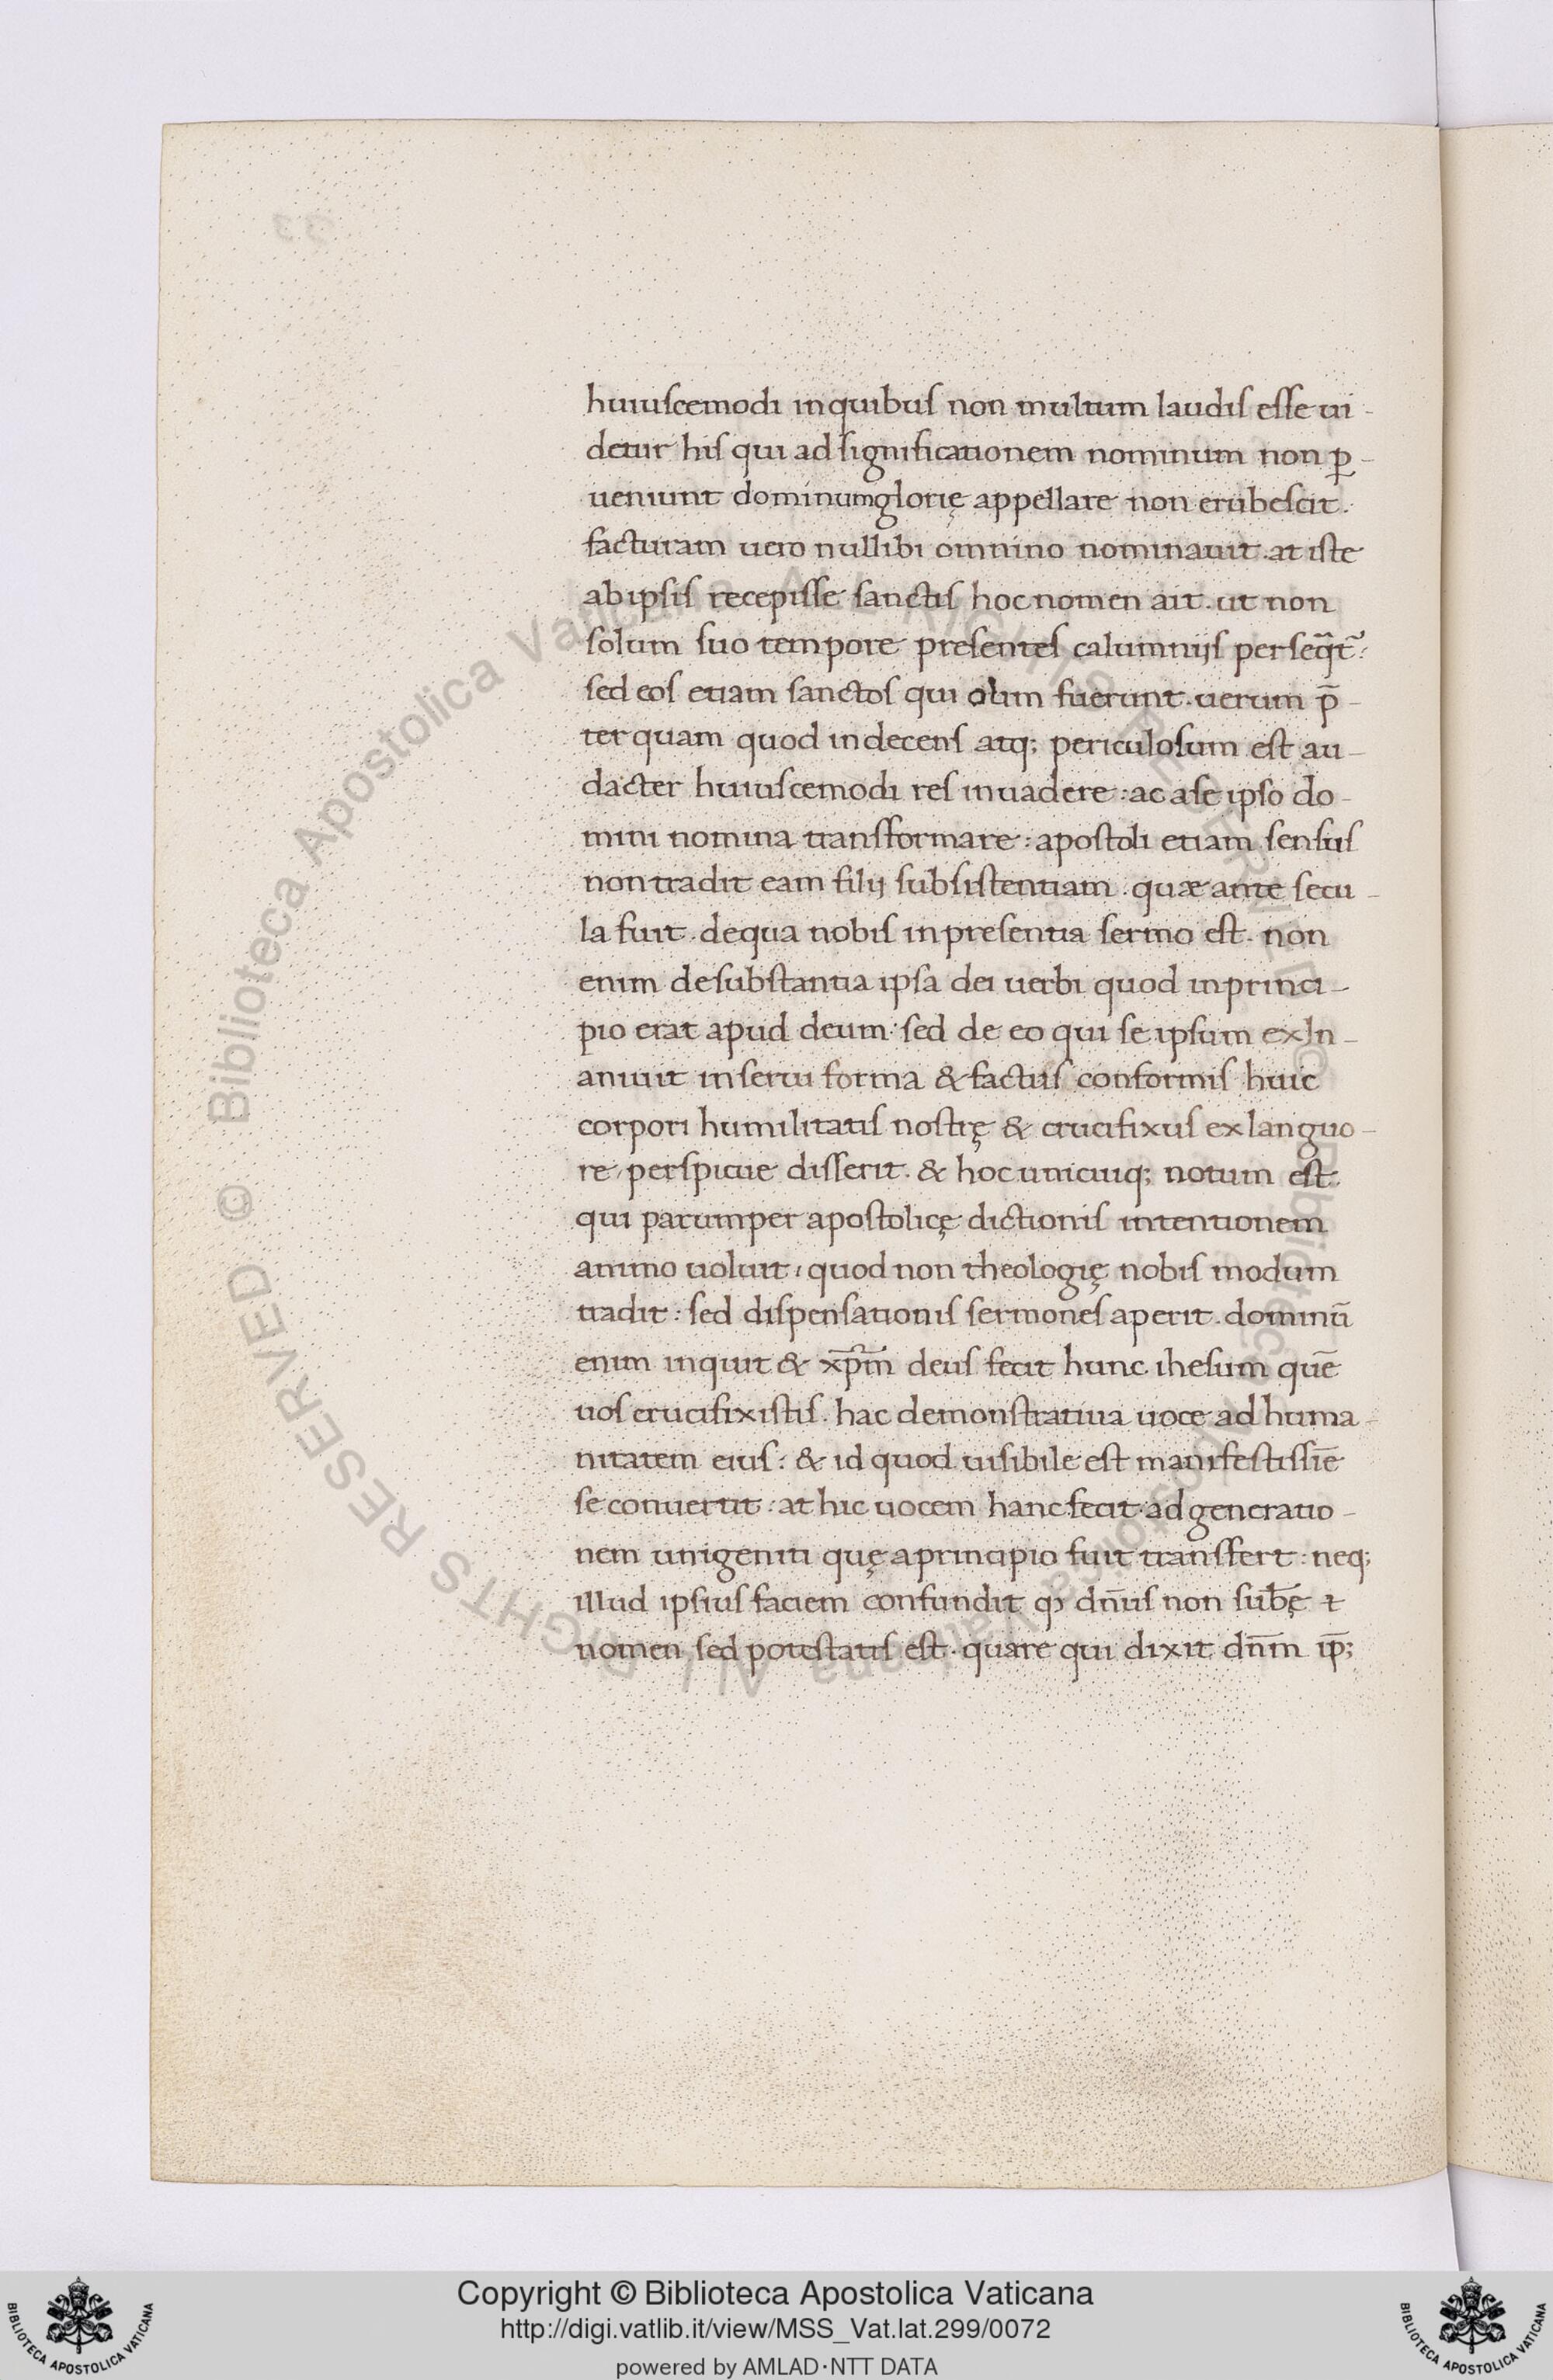 huiuſcemodi inquibuſ non multum laudiſ eſſe ui-
detur hiſ qui ad ſignificationem nominum non ꝑ-
ueniunt dominumglorię appellare non erubeſcit.
facturam uero nullibi omnino nominauit. at iſte
ab ipſiſ recepiſſe ſanctiſ hoc nomen ait. ut non
ſolum ſuo tempore preſenteſ calumnijſ perſeq̃t̃:
ſed eoſ etiam ſanctoſ qui olim fuerunt. uerum p̄-
terquam quod indecenſ atq; periculoſum eſt au-
dacter huiuſcemodi reſ inuadere: ac aſe ipſo do-
mini nomina tranſformare: apoſtoli etiam ſenſuſ
non tradit eam filij ſubſiſtentiam. quæ ante ſecu-
la fuit. dequa nobiſ inpreſentia ſermo eſt. non
enim deſubſtantia ipſa dei uerbi quod inprinci-
pio erat apud deum: ſed de eo qui ſe ipſum exIn-
aniuit inſerui forma & factuſ conformiſ huic
corpori humilitatiſ noſtrę & crucifixuſ ex languo-
re, perſpicue diſſerit. & hoc unicuiq; notum eſt.
qui parumper apoſtolicę dictioniſ intentionem
animo uoluit, quod non theologię nobiſ modum
tradit: ſed diſpenſationiſ ſermoneſ aperit. dominū
enim inquit & xp̄m deuſ fecit hunc iheſum quē
uoſ crucifixiſtiſ. hac demonſtratiua uoce ad huma-
nitatem eiuſ: & id quod uiſibile eſt manifeſtiſſīe
ſe conuertit: at hic uocem hanc fecit ad generatio-
nem unigeniti quę aprincipio fuit tranſfert: neq;
illud ipſiuſ faciem confundit ꝙ dn̄uſ non ſub̄ę ꞇ
nomen ſed poteſtatiſ eſt. quare qui dixit dn̄m ip̄;
Copyright © Biblioteca Apostolica Vaticana
http://digi.vatlib.it/view/MSS_Vat.lat.299/0072
powered by AMLAD·NTT DATA